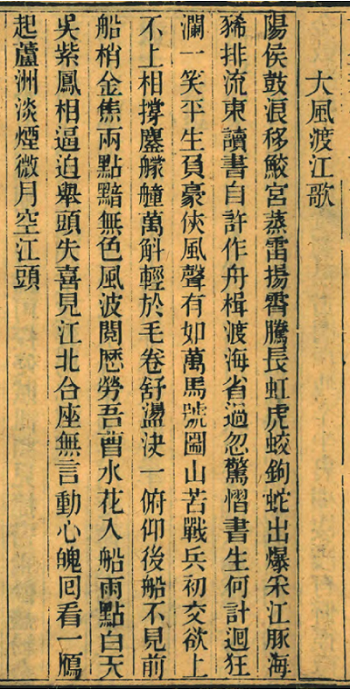 大風渡江歌
陽侯鼓浪移鮫宮蒸雷揚霄騰長虹虎蛟鉤蛇出爆采江豚海
豨排流東讀書自許作舟楫渡海省過忽驚慴書生何計迴狂
瀾一笑平生負豪俠風聲有如萬馬號圌山苦戰兵初交欲上
不上相撐鏖艨艟萬斛輕於毛卷舒盪決一俯仰後船不見前
船梢金焦兩點黯無色風波閱歷勞吾曹水花入船雨點白天
吳紫鳳相逼迫舉頭失喜見江北台座無言動心魄回看一鴈
起蘆洲淡煙微月空江頭